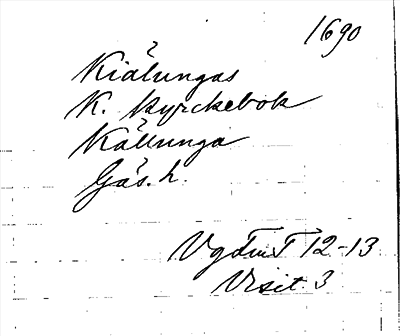 1690
Kiälungas
K. kyrckebok
Källunga
Gäs. h.
VgFmT I 2-13
Visit. 3